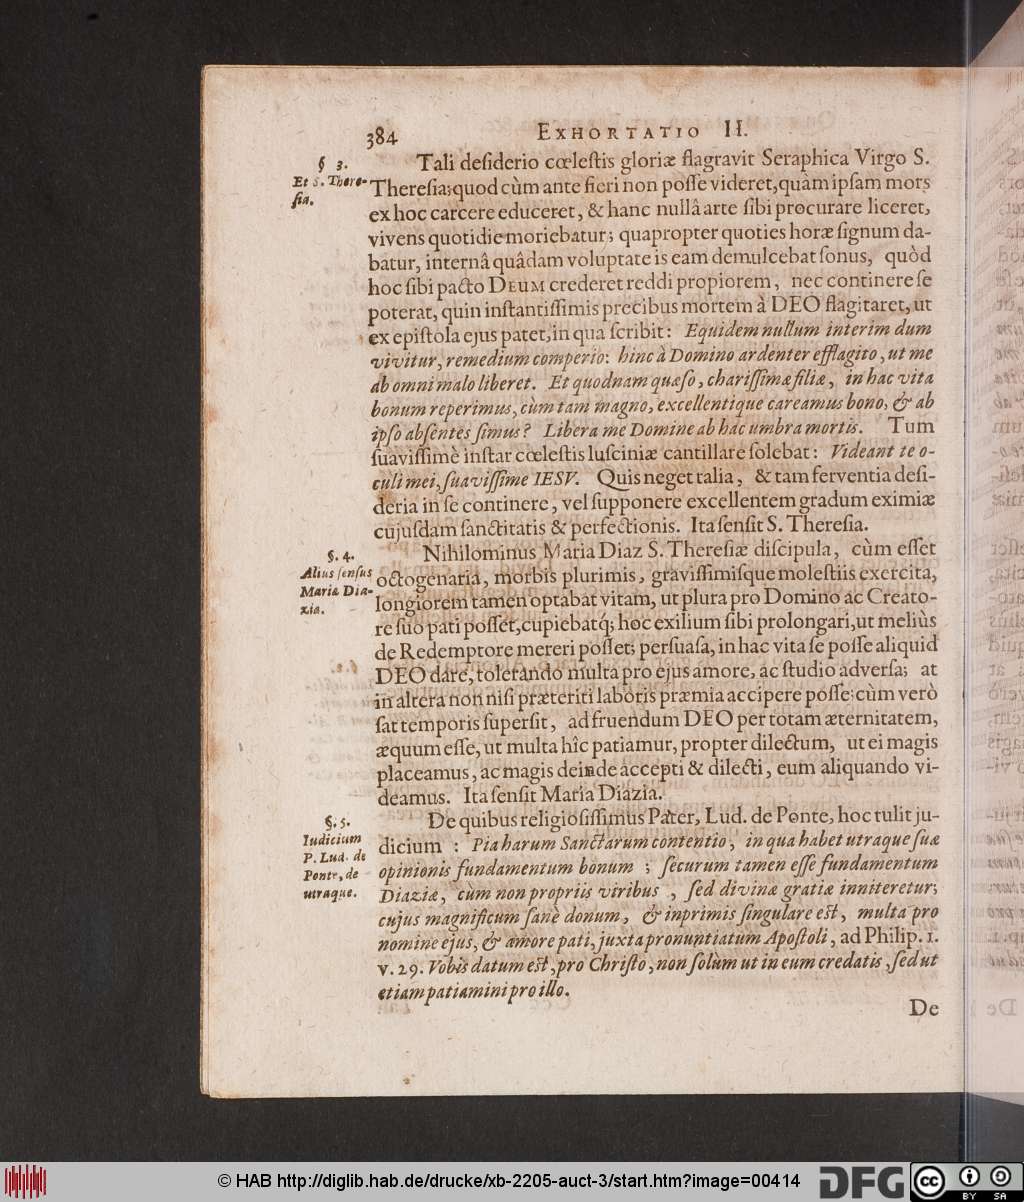 384 EXHORTATIO II.
§ 3.
Et S. There-
sia.
Tali desiderio cœlestis gloriæ flagravit Seraphica Virgo S.
Theresia; quod cùm ante fieri non posse videret, quàm ipsam mors
ex hoc carcere educeret, & hanc nullâ arte sibi procurare liceret,
vivens quotidie moriebatur; quapropter quoties horæ signum da-
batur, internâ quâdam voluptate is eam demulcebat sonus, quòd
hoc sibi pacto DEUM crederet reddi propiorem, nec continere se
poterat, quin instantissimis precibus mortem à DEO flagitaret, ut
ex epistola ejus patet, in qua scribit: Equidem nullum interim dum
vivitur, remedium comperio: hinc à Domino ardenter efflagito, ut me
ab omni malo liberet. Et quodnam quæso, charissimæ filiæ, in hac vita
bonum reperimus, cùm tam magno, excellentique careamus bono, & ab
ipso absentes simus? Libera me Domine ab hac umbra mortis. Tum
suavissimè instar cœlestis lusciniæ cantillare solebat: Videant te o-
culi mei, suavissime IESV. Quis neget talia, & tam ferventia desi-
deria in se continere, vel supponere excellentem gradum eximiæ
cujusdam sanctitatis & perfectionis. Ita sensit S. Theresia.
§. 4.
Alius sensus
Maria Dia-
zia.
Nihilominus Maria Diaz S. Theresiæ discipula, cùm esset
octogenaria, morbis plurimis, gravissimisque molestiis exercita,
longiorem tamen optabat vitam, ut plura pro Domino ac Creato-
re suo pati posset, cupiebatq́; hoc exilium sibi prolongari, ut meliùs
de Redemptore mereri posset; persuasa, in hac vita se posse aliquid
DEO dare, tolerando multa pro ejus amore, ac studio adversa; at
in altera non nisi præteriti laboris præmia accipere posse: cùm verò
sat temporis supersit, ad fruendum DEO per totam æternitatem,
æquum esse, ut multa hîc patiamur, propter dilectum, ut ei magis
placeamus, ac magis deinde accepti & dilecti, eum aliquando vi-
deamus. Ita sensit Maria Diazia.
§. 5.
Iudicium
P. Lud. de
Ponte, de
utraque.
De quibus religiosissimus Pater, Lud. de Ponte, hoc tulit ju-
dicium : Pia harum Sanctarum contentio, in qua habet utraque suæ
opinionis fundamentum bonum ; securum tamen esse fundamentum
Diaziæ, cùm non propriis viribus , sed divinæ gratiæ inniteretur;
cujus magnificum sanè donum, & inprimis singulare est, multa pro
nomine ejus, & amore pati, juxta pronuntiatum Apostoli, ad Philip. 1.
v. 29. Vobis datum est, pro Christo, non solùm ut in eum credatis, sed ut
etiam patiamini pro illo.
De
© HAB http://diglib.hab.de/drucke/xb-2205-auct-3/start.htm?image=00414
DFG
cc
BY SA